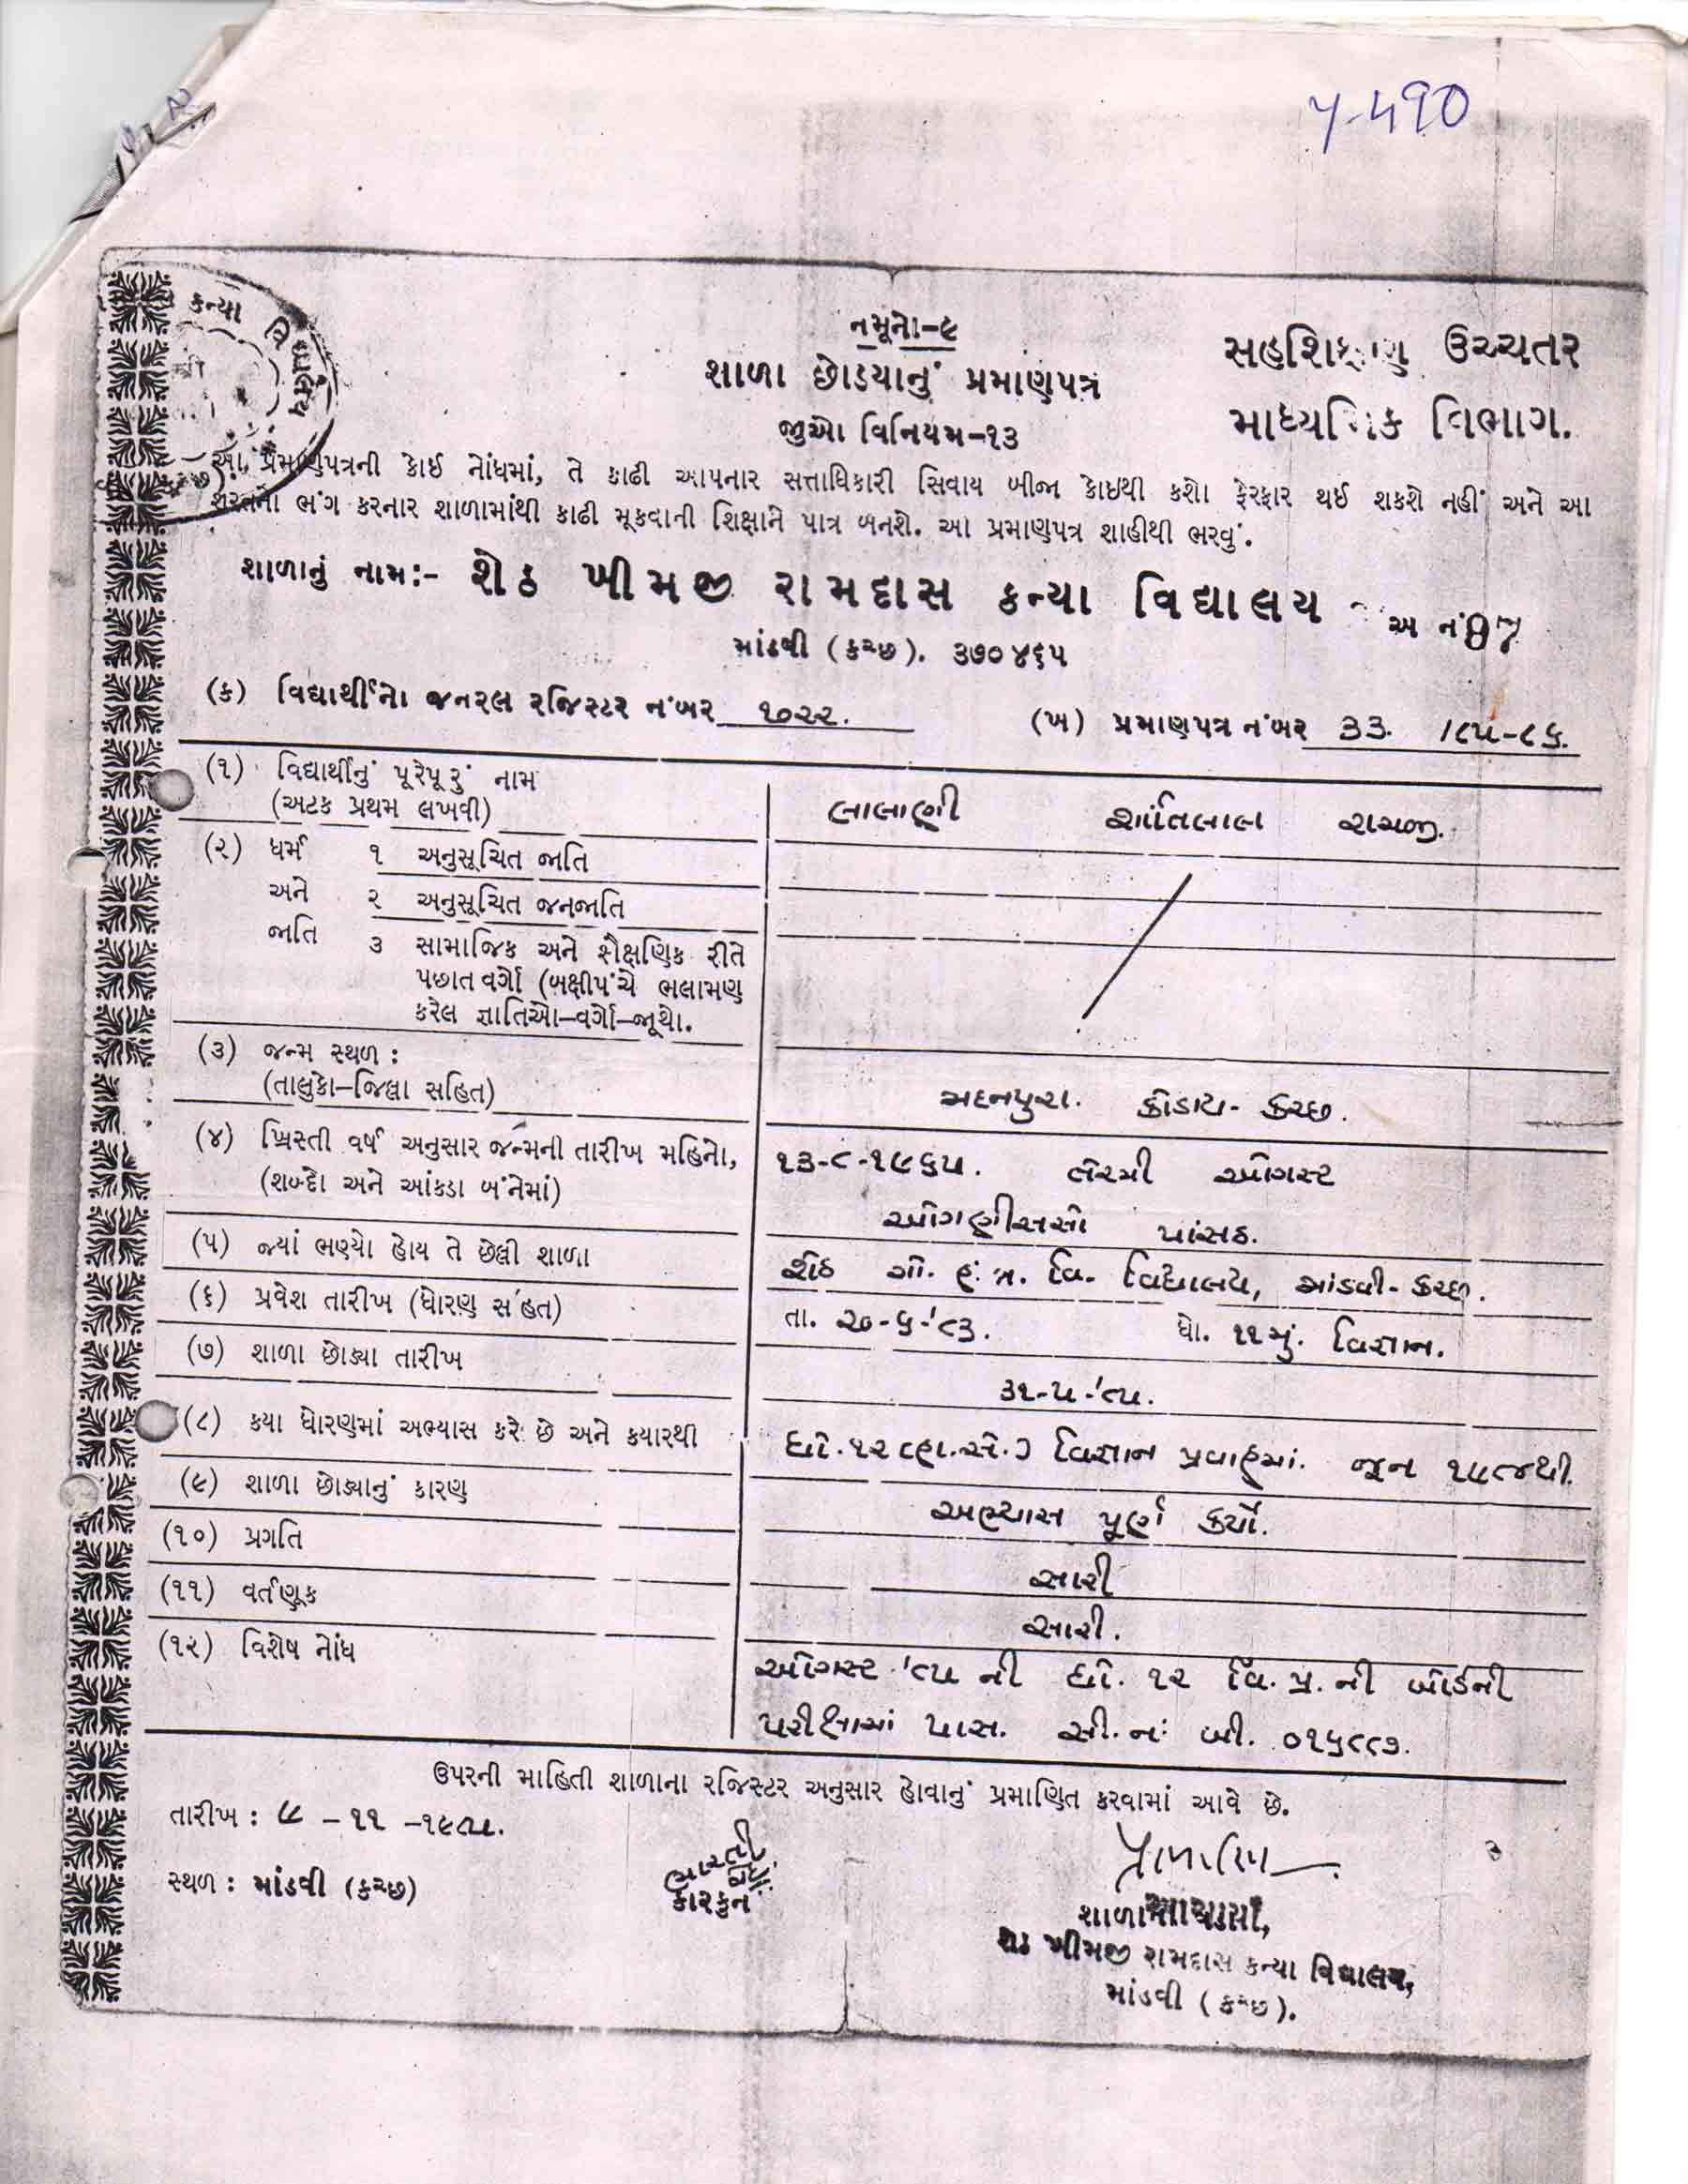 ૫-૫૧૦
કન્યા વિદ્યાલય
નમૂનો-૯
સહશિક્ષણ ઉચ્ચતર
શાળા છોડયાનું પ્રમાણપત્ર
માધ્યમિક વિભાગ.
જીઓ વિનિયમ-૧૩
આ પ્રમાણપત્રની કોઈ નોંધમાં, તે કાઢી આપનાર સત્તાધિકારી સિવાય બીજા કોઇથી કશો ફેરફાર થઈ શકશે નહીં અને આ
શરતનો ભંગ કરનાર શાળામાંથી કાઢી મૂકવાની શિક્ષાને પાત્ર બનશે. આ પ્રમાણપત્ર શાહીથી ભરવું.
શાળાનું નામ:- શેઠ ખીમજી રામદાસ કન્યા વિદ્યાલય અ નં 87
માંડવી (કચ્છ). ૩૭૦૪૬૫
(ક) વિદ્યાર્થીનો જનરલ રજિસ્ટર નંબર ૧૦૨૨. (ખ) પ્રમાણપત્ર નંબર ૩૩. /૮૫-૮૬.
(૧) વિદ્યાર્થીનું પૂરેપૂરું નામ
(અટક પ્રથમ લખવી) લાલાણી શાંતિલાલ રામજી.
(૨) ધર્મ ૧ અનુસૂચિત જાતિ
અને ૨ અનુસૂચિત જનજાતિ
જાતિ ૩ સામાજિક અને શૈક્ષણિક રીતે
પછાત વર્ગો (બક્ષીપંચે ભલામણ
કરેલ જ્ઞાતિઓ-વર્ગો-જૂથો.
(૩) જન્મ સ્થળ :
(તાલુકો-જિલ્લા સહિત) મદનપુરા. કોડાય- કચ્છ.
(૪) ખ્રિસ્તી વર્ષ અનુસાર જન્મની તારીખ મહિનો, ૧૩-૮-૧૯૬૫. તેરમી ઓગસ્ટ
(શબ્દો અને આંકડા બંનેમાં) ઓગણીસસો પાંસઠ.
(૫) જ્યાં ભણ્યો હોય તે છેલ્લી શાળા શેઠ ગો. હં. ત્ર. વિ. વિદ્યાલય, માંડવી- કચ્છ.
(૬) પ્રવેશ તારીખ (ધોરણ સહિત) તા. ૨૦-૬-'૮૩. ધો. ૧૧મું. વિજ્ઞાન.
(૭) શાળા છોડ્યા તારીખ ૩૧-૫-'૮૫.
(૮) કયા ધોરણમાં અભ્યાસ કરે છે અને કયારથી ધો.૧૨(હા.સે.) વિજ્ઞાન પ્રવાહમાં. જૂન ૧૯૮૪થી.
(૯) શાળા છોડ્યાનું કારણ અભ્યાસ પૂર્ણ કર્યો.
(૧૦) પ્રગતિ સારી
(૧૧) વર્તણૂક સારી.
(૧૨) વિશેષ નોંધ ઓગસ્ટ '૮૫ ની ધો. ૧૨ વિ. પ્ર. ની બોર્ડની
પરીક્ષામાં પાસ. સી. નં: બી. ૦૧૬૮૮૭.
ઉપરની માહિતી શાળાના રજિસ્ટર અનુસાર હોવાનું પ્રમાણિત કરવામાં આવે છે.
તારીખ : ૯ - ૧૧ -૧૯૮૫.
ભારતી
સ્થળ : માંડવી (કચ્છ) કારકુન
શાળાના આચાર્યા,
શેઠ ખીમજી રામદાસ કન્યા વિદ્યાલય,
માંડવી (કચ્છ).